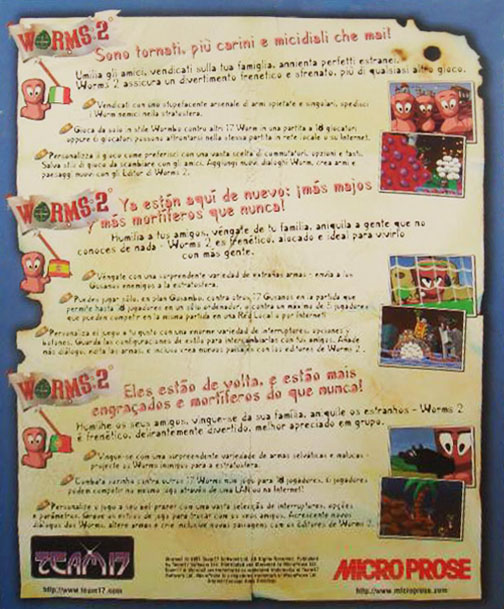 WORMS 2
Sono tornati, più carini e micidiali che mai!
Umilia gli amici, vendicati sulla tua famiglia, annienta perfetti estranei.
Worms 2 assicura un divertimento frenetico e sfrenato, più di qualsiasi altro gioco.
Vendicati con uno stupefacente arsenale di armi spietate e singolari, spedisci
i Worm nemici nella stratosfera.
Gioca da solo in stile Wormbo contro altri 17 Worm in una partita a 18 giocatori
oppure 6 giocatori possono affrontarsi nella stessa partita in rete locale o su Internet.
Personalizza il gioco come preferisci con una vasta scelta di commutatori, opzioni e tasti.
Salva stili di gioco da scambiare con gli amici. Aggiungi nuovi dialoghi Worm, crea armi e
paesaggi nuovi con gli Editor di Worms 2.
WORMS 2
Ya están aquí de nuevo: ¡más majos
y más mortíferos que nunca!
Humilla a tus amigos, véngate de tu familia, aniquila a gente que no
conoces de nada - Worms 2 es frenético, alocado e ideal para vivirlo
con más gente.
Véngate con una sorprendente variedad de extrañas armas - envía a los
Gusanos enemigos a la estratosfera.
Puedes jugar sólo, en plan Gusambo, contra otros 17 Gusanos en la partida que
permite hasta 18 jugadores en un sólo ordenador, o contra un máximo de 5 jugadores
que pueden competir en la misma partida en una Red Local o por Internet!
Personaliza el juego a tu gusto con una enorme variedad de interruptores, opciones y
botones. Guarda las configuraciones de estilo para intercambiarlas con tus amigos. Añade
más diálogo, edita las armas, e incluso crea nuevos paisajes con los editores de Worms 2.
WORMS 2
Eles estão de volta, e estão mais
engraçados e mortíferos do que nunca!
Humilhe os seus amigos, vingue-se da sua família, aniquile os estranhos - Worms 2
é frenético, delirantemente divertido, melhor apreciado em grupo.
Vingue-se com uma surpreendente variedade de armas selváticas e malucas -
projecte os Worms inimigos para a estratosfera.
Combata sozinho contra outros 17 Worms num jogo para 18 jogadores, 6 jogadores
podem competir no mesmo jogo através de uma LAN ou na Internet!
Personalize o jogo a seu bel prazer com uma vasta selecção de interruptores, opções
e parâmetros. Grave os estilos de jogo para trocar com os seus amigos. Acrescente novos
diálogos dos Worms, altere armas e crie inclusive novas paisagens com os Editores de Worms 2.
TEAM17
MICROPROSE
http://www.team17.com
http://www.microprose.com